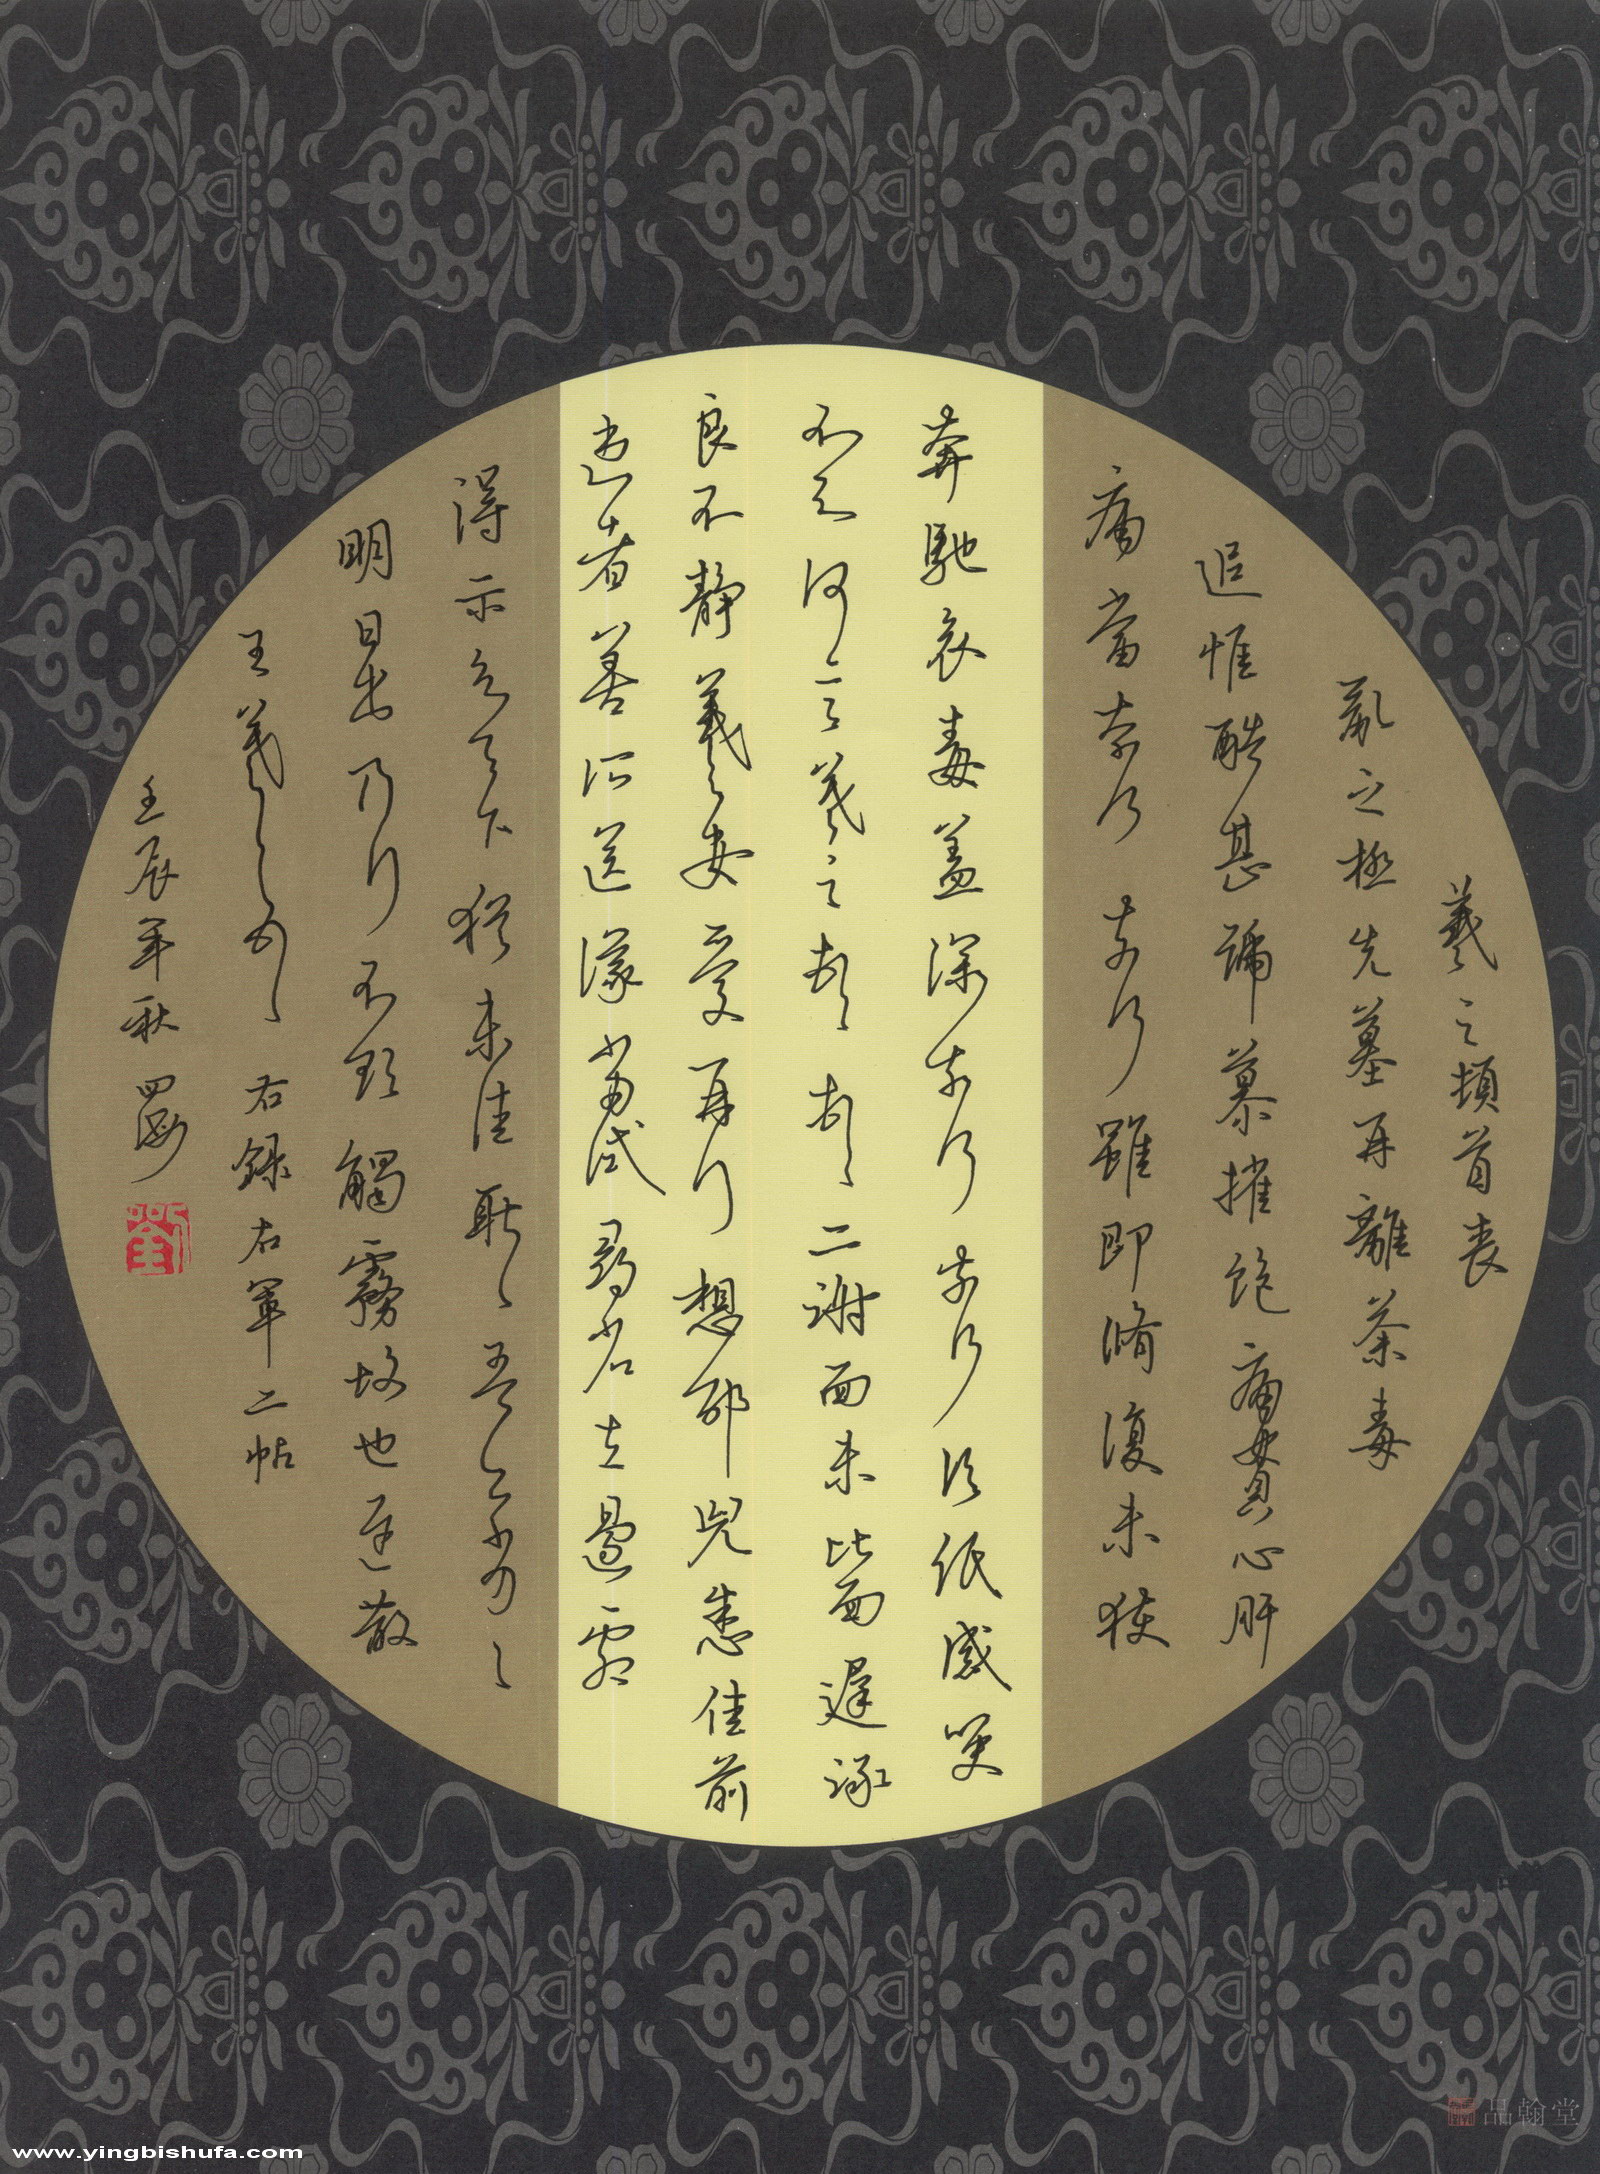 羲之頓首喪
亂之極先墓再離荼毒
追惟酷甚號慕摧絕痛貫心肝
痛當奈何奈何雖即脩復未獲
奔馳哀毒益深奈何奈何臨紙感哽
不知何言羲之頓首頓首二謝面未比面遲詠
良不靜羲之女愛再拜想邵兒悉佳前
患者善所送議當試尋省左邊劇
得示知足下猶未佳耿耿吾亦劣劣
明日出乃行不欲觸霧故也遲散
王羲之頓首 右錄右軍二帖
壬辰年秋
品翰堂
www.yingbishufa.com